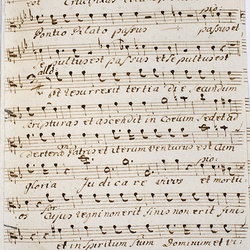 est Crucifixus
pio:
Pontio Pilato passus passus et
sepultus est passus et sepultus est
allo
et resurrexit tertia die, secundum
scripturas et ascendit in Coelum sedet ad
dexteram Patris et iterum venturus est cum
pio:
gloria judicare vivos et mortu
os Cujus regni non erit finis non erit finis
et in Spiritum Stum Dominum et vi